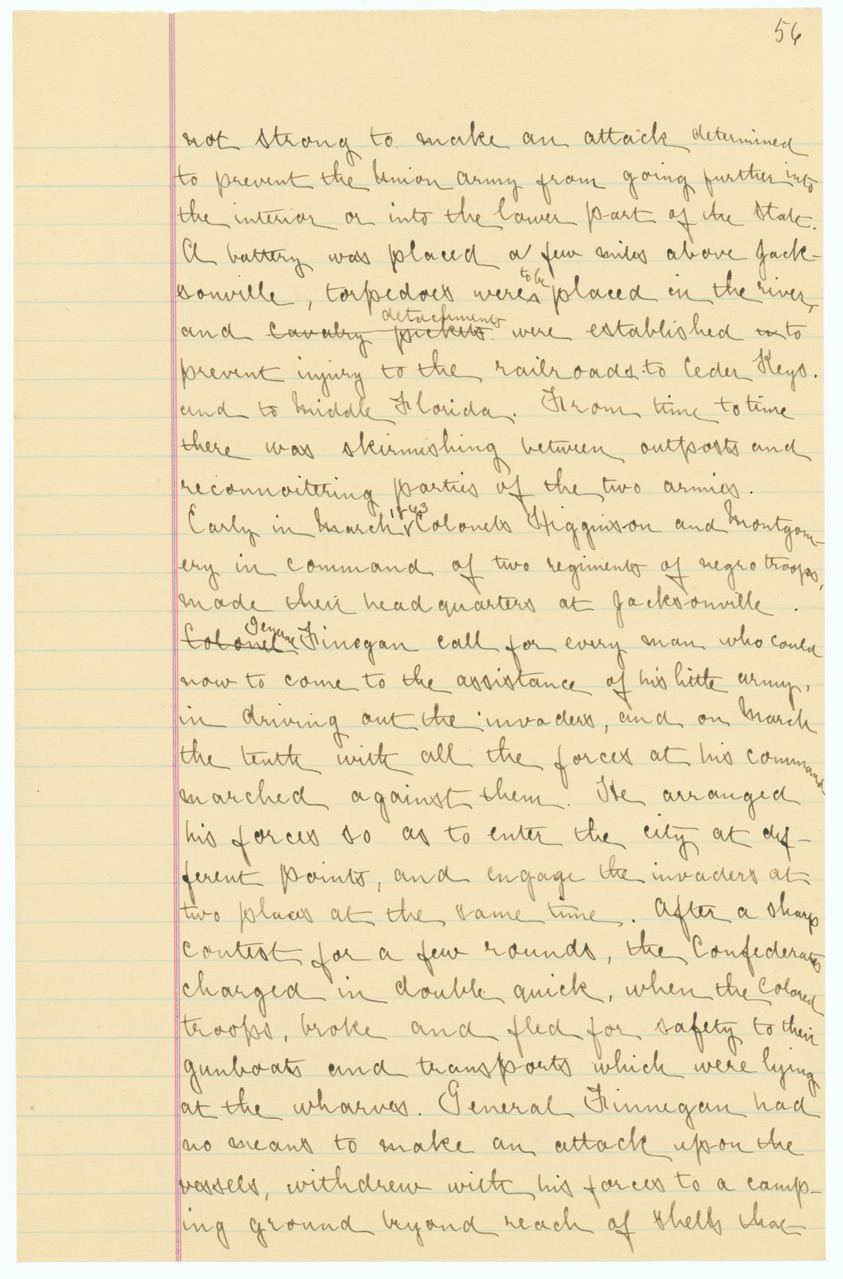 56
not strong to make an attack determined
to prevent the Union army from going further into
the interior or into the lower part of the State.
A battery was placed a few miles above Jack-
sonville, torpedoes were to be placed in the river,
and Cavalry pickets detachments were established in to
prevent injury to the railroads to Ceder Keys.
and to Middle Florida. From time to time
there was skirmishing between outposts and
reconnoitering parties of the two armies.
Early in March 1863 Colonels Higginson and Montgom-
ery in command of two regiments of negro troops,
made their headquarters at Jacksonville.
Colonel General Finegan call for every man who could
now to come to the assistance of his little army,
in driving out the invaders, and on March
the tenth with all the forces at his command
marched against them. He arranged
his forces so as to enter the city at dif-
ferent points, and engage the invaders at
two places at the same time. After a sharp
contest for a few rounds, the Confederates
charged in double quick, when the Colored
troops, broke and fled for safety to their
gunboats and transports which were lying
at the wharves. General Finnegan had
no means to make an attack upon the
vessels, withdrew with his forces to a camp-
ing ground beyond reach of shells that